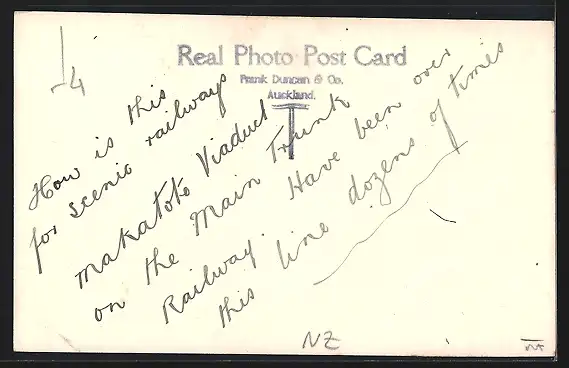 -4
Real Photo Post Card
Frank Duncan & Co.
Auckland.
How is this
for scenic railways
Makatote Viaduct
on the Main Trunk
Railway. Have been over
this line dozens of times
NZ